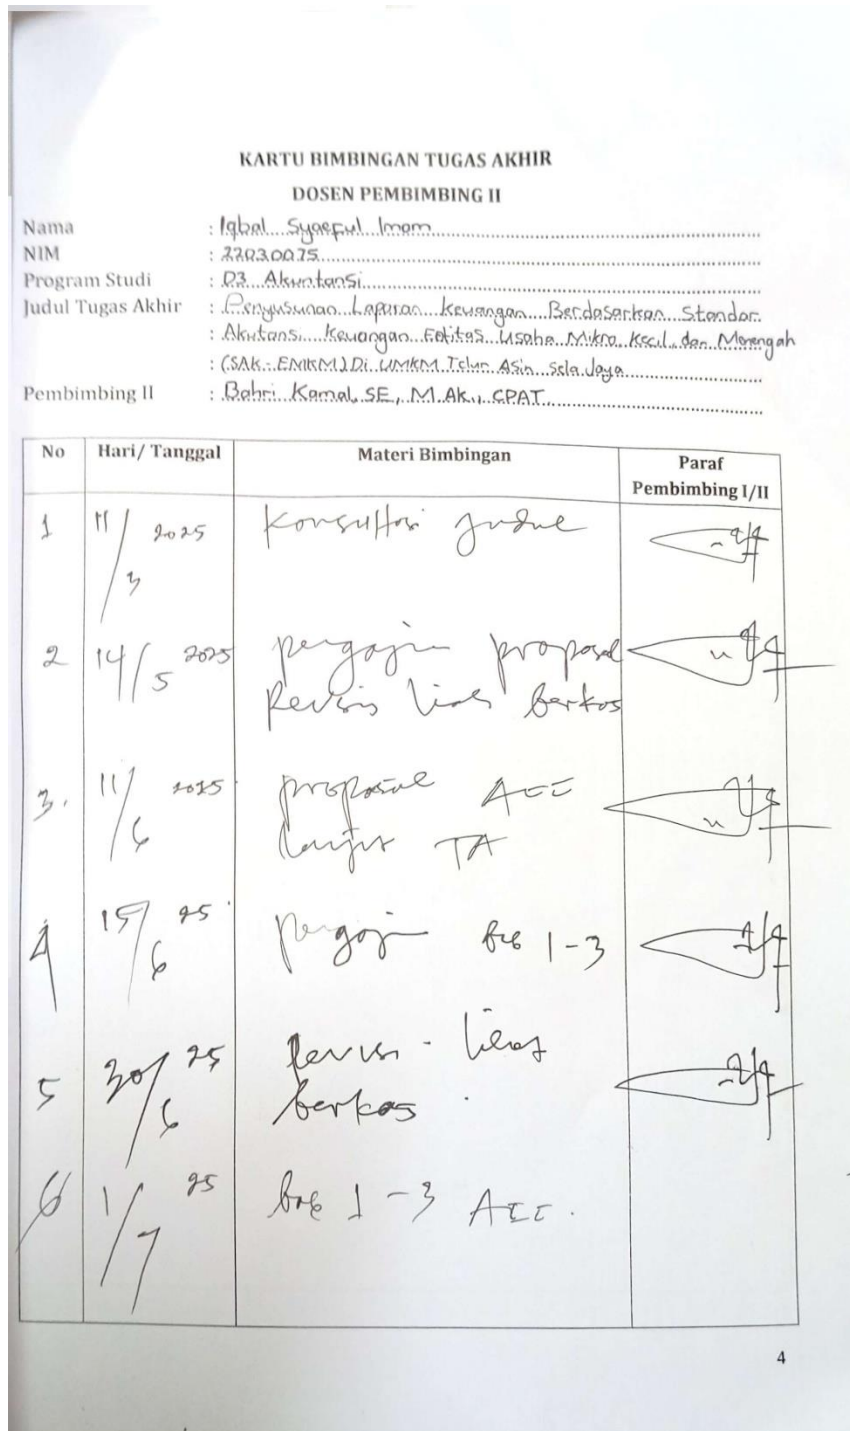 KARTU BIMBINGAN TUGAS AKHIR
DOSEN PEMBIMBING II
Nama : Iqbal Syaeful Imam
NIM : 22030075
Program Studi : D3 Akuntansi
Judul Tugas Akhir : Penyusunan Laporan Keuangan Berdasarkan Standar
: Akutansi Keuangan Entitas Usaha Mikro Kecil dan Menengah
: (SAK-EMKM) Di UMKM Telur Asin Sela Jaya
Pembimbing II : Bahri Kamal, SE, M.Ak., CPAT
No Hari/ Tanggal Materi Bimbingan Paraf Pembimbing I/II
1 11/3 2025 Konsultasi judul
2 14/5 2025 pengajuan proposal
Revisi lihat berkas
3. 11/6 2025 proposal ACC
lanjut TA
4 15/6 25 pengajuan bab 1-3
5 30/6 25 Revisi - lihat
berkas.
6 1/7 25 bab 1-3 ACC.
4